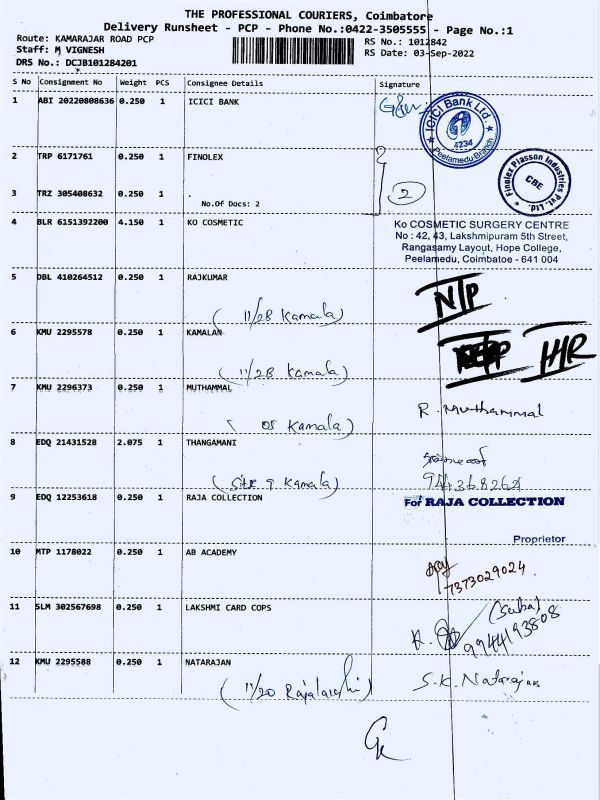 THE PROFESSIONAL COURIERS, Coimbatore
Delivery Runsheet - PCP - Phone No.:0422-3505555 - Page No.:1
Route: KAMARAJAR ROAD PCP
RS No.: 1012842
Staff: M VIGNESH
RS Date: 03-Sep-2022
DRS No.: DCJB101284201
S No Consignment No Weight PCS Consignee Details Signature
1 ABI 20220808636 0.250 1 ICICI BANK
ICICI Bank Ltd. 4234 Peelamedu Branch
2 TRP 6171761 0.250 1 FINOLEX
Finolex Plasson Industries Pvt. Ltd. CBE
3 TRZ 305408632 0.250 1
No.Of Docs: 2
2
4 BLR 6151392200 4.150 1 KO COSMETIC
Ko COSMETIC SURGERY CENTRE
No : 42, 43, Lakshmipuram 5th Street,
Rangasamy Layout, Hope College,
Peelamedu, Coimbatoe - 641 004
5 DBL 410264512 0.250 1 RAJKUMAR
NTP
(11/2B Kamala)
6 KMU 2295578 0.250 1 KAMALAN
(11/2B Kamala)
7 KMU 2296373 0.250 1 MUTHAMMAL
R. Muthammal
Kamala)
8 EDQ 21431528 2.075 1 THANGAMANI
(Site 9 Kamala)
9 EDQ 12253618 0.250 1 RAJA COLLECTION
For RAJA COLLECTION
Proprietor
10 MTP 1178022 0.250 1 AB ACADEMY
7373029024
11 SLM 302567698 0.250 1 LAKSHMI CARD COPS
(Suba)
9944193808
12 KMU 2295588 0.250 1 NATARAJAN
S.K. Natarajan